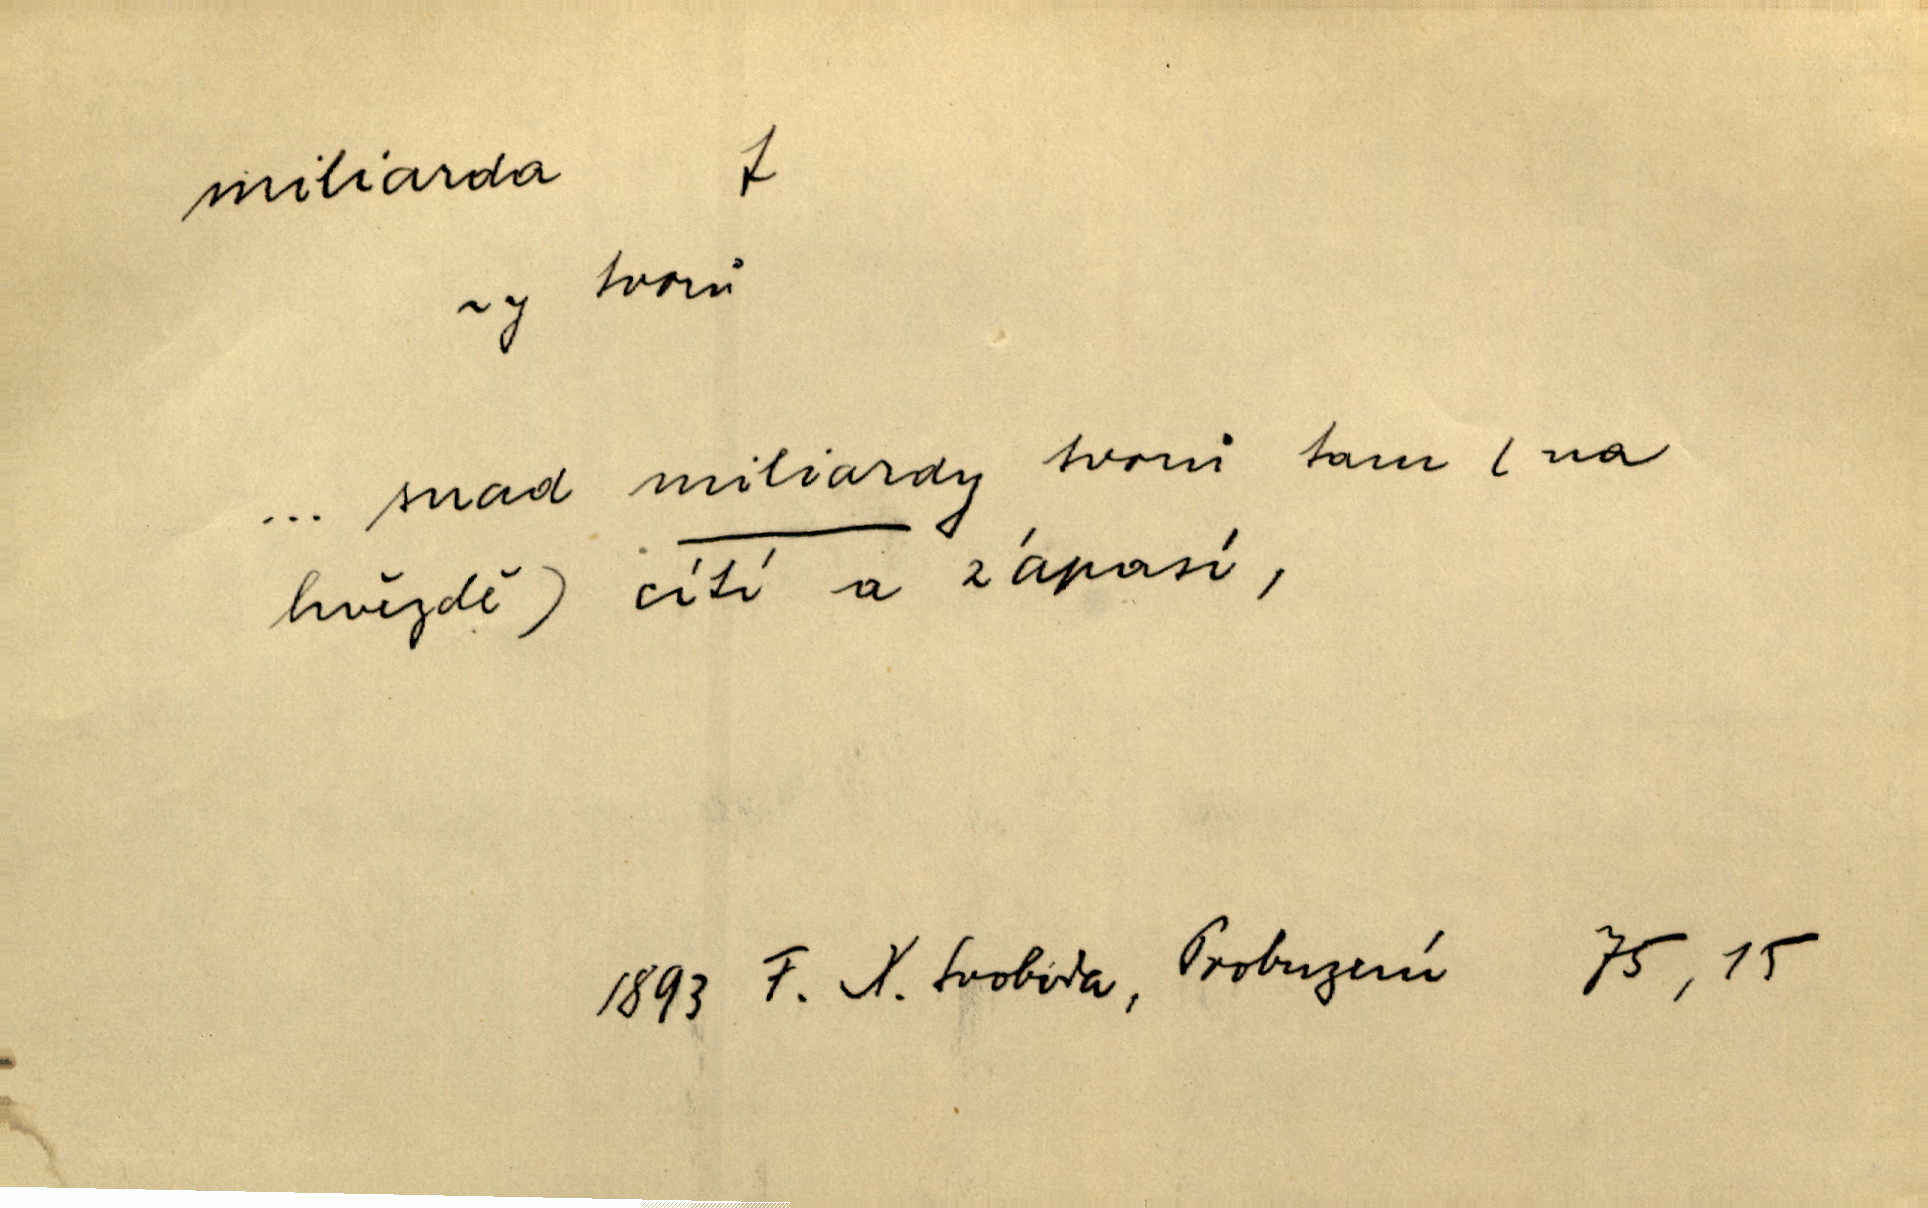 miliarda f
~y tvorů
... snad miliardy tvorů tam (na
hvězdě) cítí a zápasí,
1893 F. X. Svoboda, Probuzení 75, 15